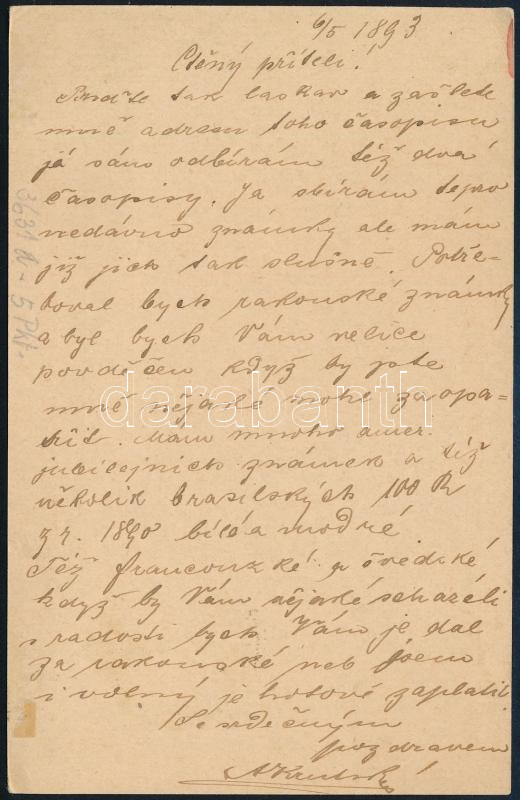 6/5 1893
Ctěný příteli!
Buďte tak laskav a zašlete
mně adresu toho časopisu
já sám odbírám též dva
časopisy. Ja sbírám tepro
nedávno známky ale mám
již jich tak slušně. Potře-
boval bych rakouské známky
a byl bych Vám velice
povděčen když by jste
mně nějaké mohl zaopa-
třit. Mám mnoho amer.
známek a též
několik brasilských 100 R
z r. 1890 bílé a modré.
Též francouzké a švédské
když by Vám nějaké scházeli
s radosti bych Vám je dal
za rakouské neb jsem
i volný je hotově zaplatit.
Se srdečným
pozdravem
3631 A - 5 Pkt.
darabanth